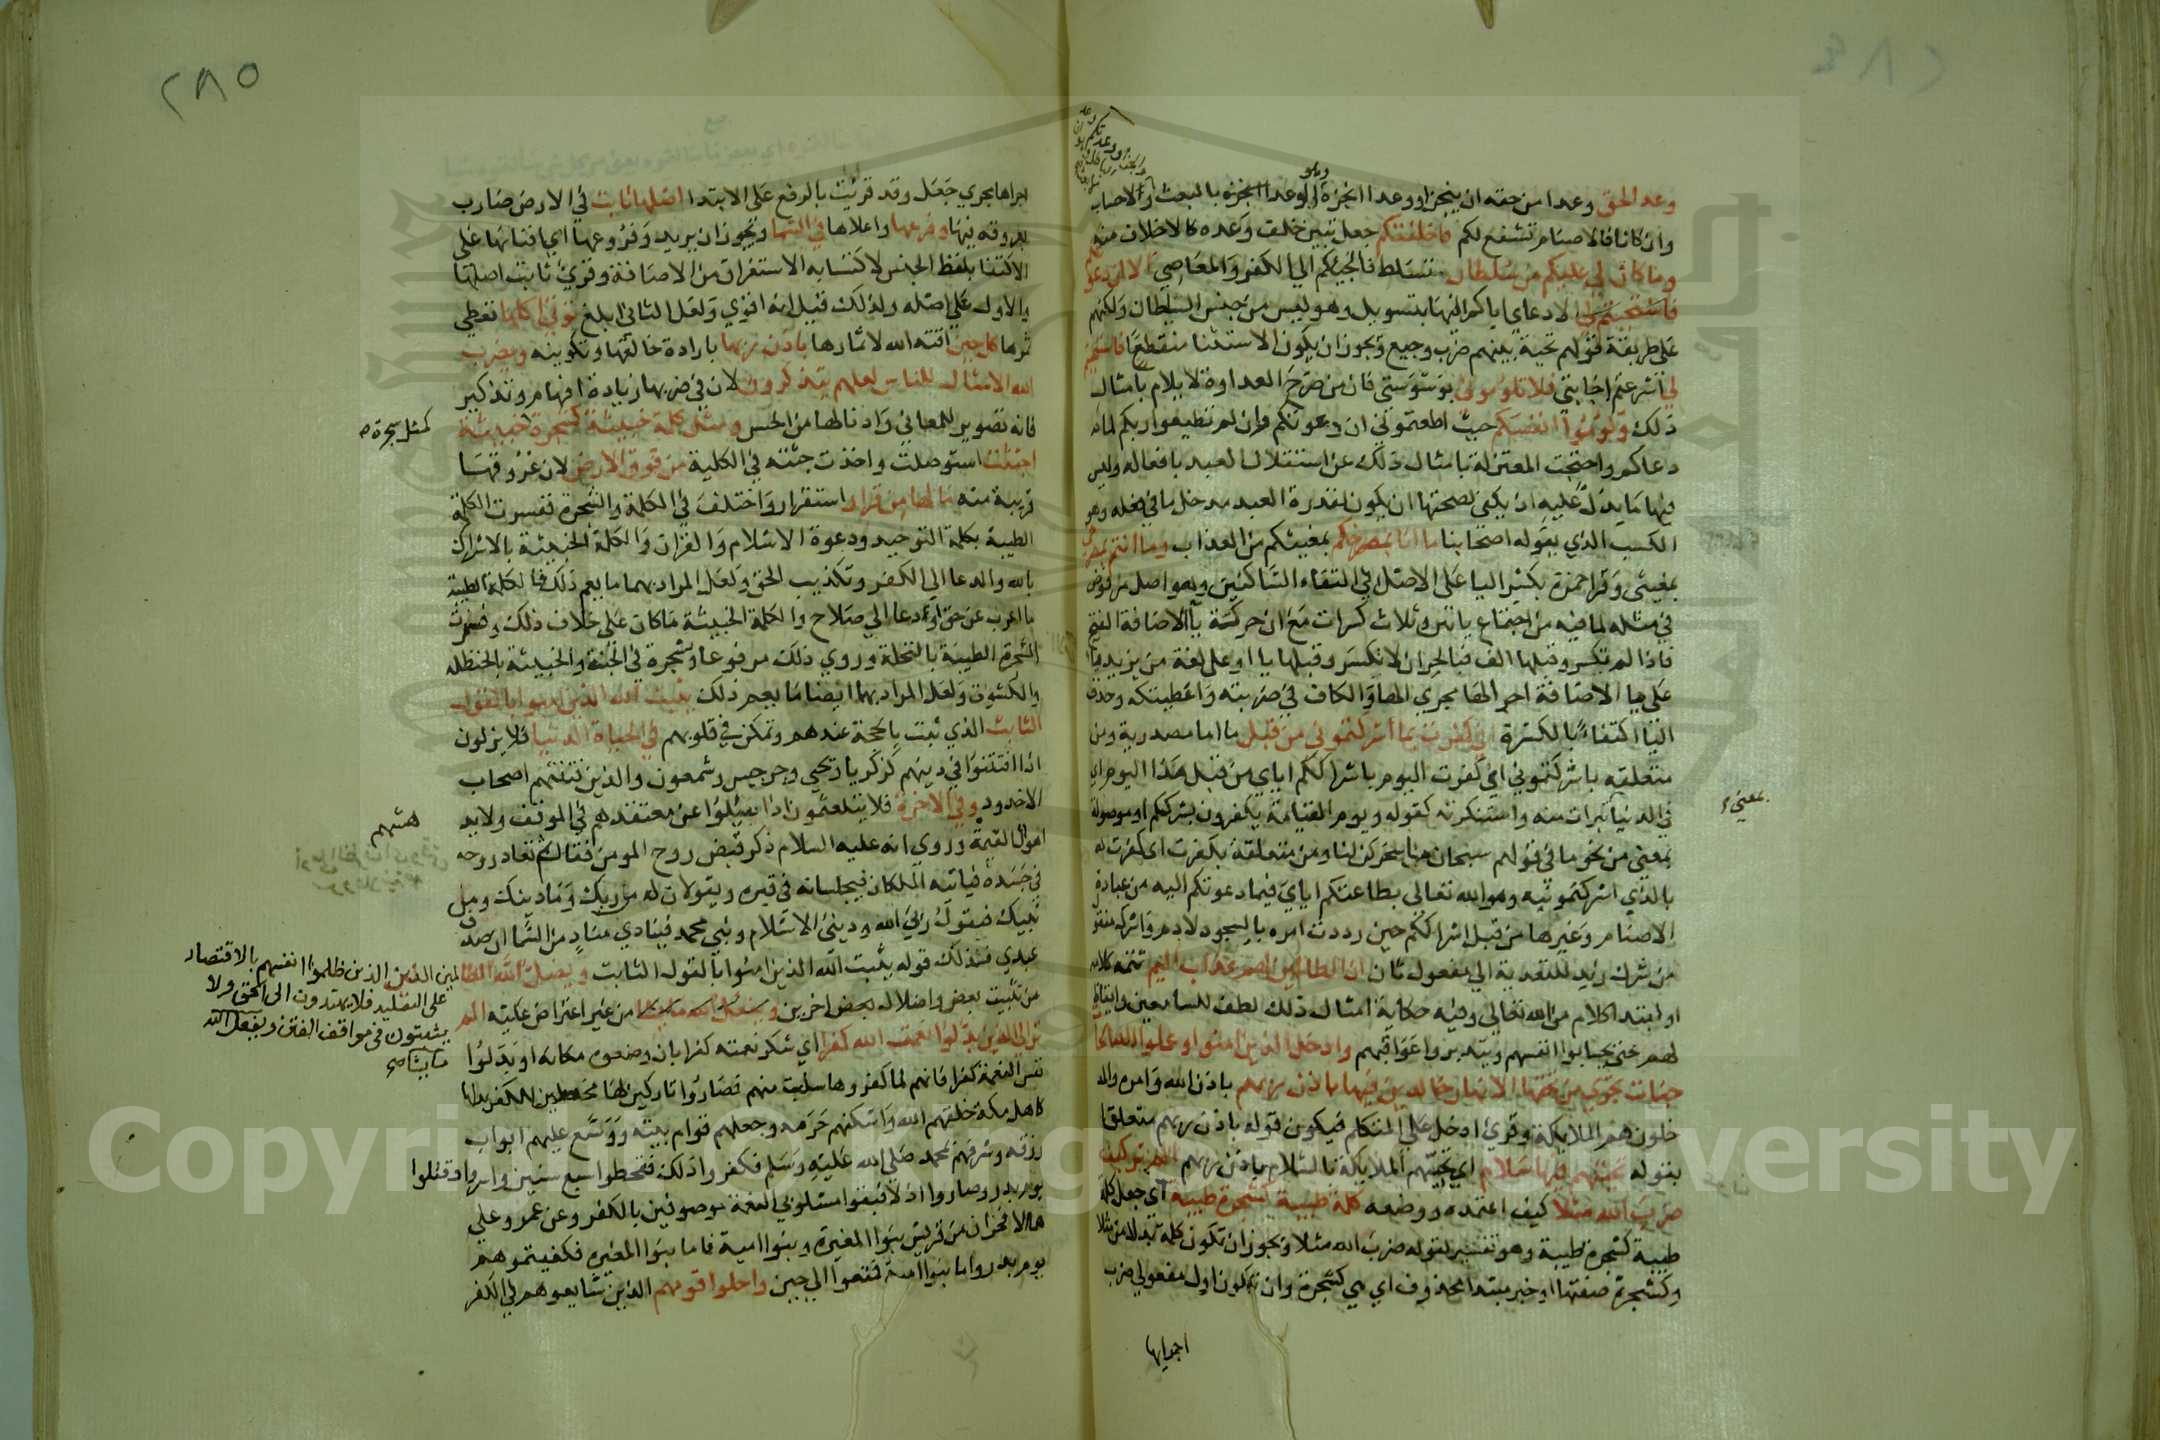 ٢٨٥
وعد الحق وعدا من حقه ان ينجز او وعدا انجزه الوعدا انجزه بالبعث والاحساب
وان كانا فالاصنام تشفع لكم فاخلفتكم جعل تبين خلف وعده كالاخلاف منه
وما كان لي عليكم من سلطان تسلط فالجيكم الي الكفر والمعاصي الا ان دعو
فاستجبتم لي الا دعاي اياكم اليها بتسويل وهو ليس من جنس السلطان ولكنهم
على طريقة قولهم تحية بينهم ضرب وجيع ويجوز ان يكون الاستثنا منقطعا فاستجبتم
لي اسرعتم اجابتي فلا تلوموني بوسوستي فان من صرح العداوة لا يلام بامثال
ذلك ولوموا انفسكم حيث اطعتموني ان دعوتكم وان لم تطيعوا ربكم لما
دعاكم واحتجت المعتزلة بامثال ذلك عن استقلال العبد بافعاله وليس
فيها ما يدل عليه اذ يكفي لصحتها ان يكون لقدرة العبد مدخل ما في فعله وهو
الكسب الذي يقوله اصحابنا ما انا بمصرخكم بمغيثكم من العذاب وما انتم بمصرخي
بمغيثي وقرا حمزة بكسر اليا على الاصل في التقاء الساكنين وهو اصل مرفوض
في مثله لما فيه من اجتماع يائين وثلاث كسرات مع ان حركة يا الاضافة الفتح
فاذا لم تكسر وقبلها الف فبالحري ان لا تكسر وقبلها يا او على لغة من يزيد يا
على يا الاضافة اجرا لها مجري الها والكاف في ضربته واعطيتكه وحذف
اليا اكتفاء بالكسرة اني كفرت بما اشركتموني من قبل ما اما مصدرية ومن
متعلقه باشركتموني اي كفرت اليوم باشراككم اياي من قبل هذا اليوم اي
في الدنيا تبرات منه واستنكرته كقوله ويوم القيامة يكفرون بشرككم او موصولة
بمعني من نحو ما في قولهم سبحان ما سخركن لنا ومن متعلقة بكفرت اي كفرت
بالذي اشركتمونيه وهو الله تعالى بطاعتكم اياي فيما دعوتكم اليه من عبادة
الاصنام وغيرها من قبل اشراككم حين رددت امره بالسجود لادم واشرك منقول
من شرك زيد للتعدية الي مفعول ثان ان الظالمين لهم عذاب اليم تتمة كلامه
او ابتدا كلام من الله تعالى وفي حكاية امثال ذلك لطف للسامعين وايقاظ
لهم حتى يحاسبوا انفسهم ويتدبروا عواقبهم وادخل الذين امنوا وعملوا الصالحات
جنات تجري من تحتها الانهار خالدين فيها باذن ربهم باذن الله وامره والمد
خلون هم الملايكة وقري ادخل على المتكلم فيكون قوله باذن ربهم متعلقا
بقوله تحيتهم فيها سلام اي تحييهم الملايكة بالسلام باذن ربهم الم تر كيف
ضرب الله مثلا كيف اعتمده ووضعه كلمة طيبة كشجرة طيبة اي جعل كلمة
طيبة كشجرة طيبة وهو تفسير لقوله ضرب الله مثلا ويجوز ان تكون كلمة بدلا من مثلا
وكشجرة صفتها او خبر مبتدا محذوف اي هي كشجرة وان تكون اول مفعولي ضرب
بمعني
اجرايها
اجراها مجري جعل وقد قريت بالرفع على الابتدا اصلها ثابت في الارض ضارب
بعروقه فيها وفرعها واعلاها في السما ويجوز ان يريد وفروعها اي افنانها على
الاكتفا بلفظ الجنس لاكتسابه الاستغراق من الاضافة وقري ثابت اصلها
والاول على اصله ولذلك قيل انه اقوي ولعل الثاني ابلغ توتي اكلها تعطي
ثمرها كل حين اقته الله لاثمارها باذن ربها بارادة خالقها وتكوينه ويضرب
الله الامثال للناس لعلهم يتذكرون لان في ضربها زيادة افهام وتذكير
فانه تصوير للمعاني وادنا لها من الحس ومثل كلمة خبيثة كشجرة خبيثة
كمثل شجرة
اجتثت استوصلت واخذت جثته في الكلية من فوق الارض لان عروقها
قريبة منه ما لها من قرار استقرار واختلف في الكلمة والشجرة ففسرت الكلمة
الطيبة بكلمة التوحيد ودعوة الاسلام والقران والكلمة الخبيثة بالاشراك
بالله والدعا الي الكفر وتكذيب الحق ولعل المراد بهما ما يعم ذلك فالكلمة الطيبة
ما اعرب عن حق او دعا الي صلاح والكلمة الخبيثة ما كان على خلاف ذلك وفسرت
الشجرة الطيبة بالنخلة وروي ذلك مرفوعا وشجرة في الجنة والخبيثة بالحنظلة
والكشوت ولعل المراد بهما ايضا ما يعم ذلك يثبت الله الذين امنوا بالقول
الثابت الذي ثبت بالحجة عندهم وتمكن في قلوبهم في الحياة الدنيا فلا يزلون
اذا افتتنوا في دينهم كزكريا ويحيي وجرجيس وشمعون والذين فتنتهم اصحاب
الاخدود وفي الاخرة فلا يتلعثمون اذا سيلوا عن معتقدهم في الموقف ولا يد
هشهم
اموال القيمة وروي انه عليه السلام ذكر قبض روح المومن فقال ثم تعاد روحه
في جسده فياتيه الملكان فيجلسانه في قبره ويقولان له من ربك وما دينك ومن
نبيك فيقول ربي الله وديني الاسلام ونبي محمد فينادي مناد من السما ان صدق
عبدي فذلك قوله يثبت الله الذين امنوا بالقول الثابت ويضل الله الظا
لمين الذين الذين ظلموا انفسهم بالاقتصار
على التقليد فلا يهتدون الى الحق ولا
يثبتون في مواقف الفتن ويفعل الله
ما يشا صح
من تثبيت بعض واضلال بعض اخرين ويفعل الله ما يشا من غير اعتراض عليه الم
تر الي الذين بدلوا نعمت الله كفرا اي شكر نعمته كفرا بان وضعوه مكانه او بدلوا
نفس النعمة كفرا فانهم لما كفروها سلبت منهم فصاروا تاركين لها محصلين للكفر بدلها
كاهل مكة خلقهم الله واسكنهم حرمه وجعلهم قوام بيته ووسع عليهم ابواب
رزقه وشرفهم بمحمد صلى الله عليه وسلم فكفروا ذلك فقحطوا سبع سنين واسروا وقتلوا
يوم بدر وصاروا اذلا فبقوا مسلوبي النعمة موصوفين بالكفر وعن عمر وعلي
هما الافجران من قريش بنوا المغيرة وبنوا امية فاما بنوا المغيرة فكفيتموهم
يوم بدر واما بنوا امية فمتعوا الي حين واحلوا قومهم الذين شايعوهم في الكفر
Copyright © King Saud University